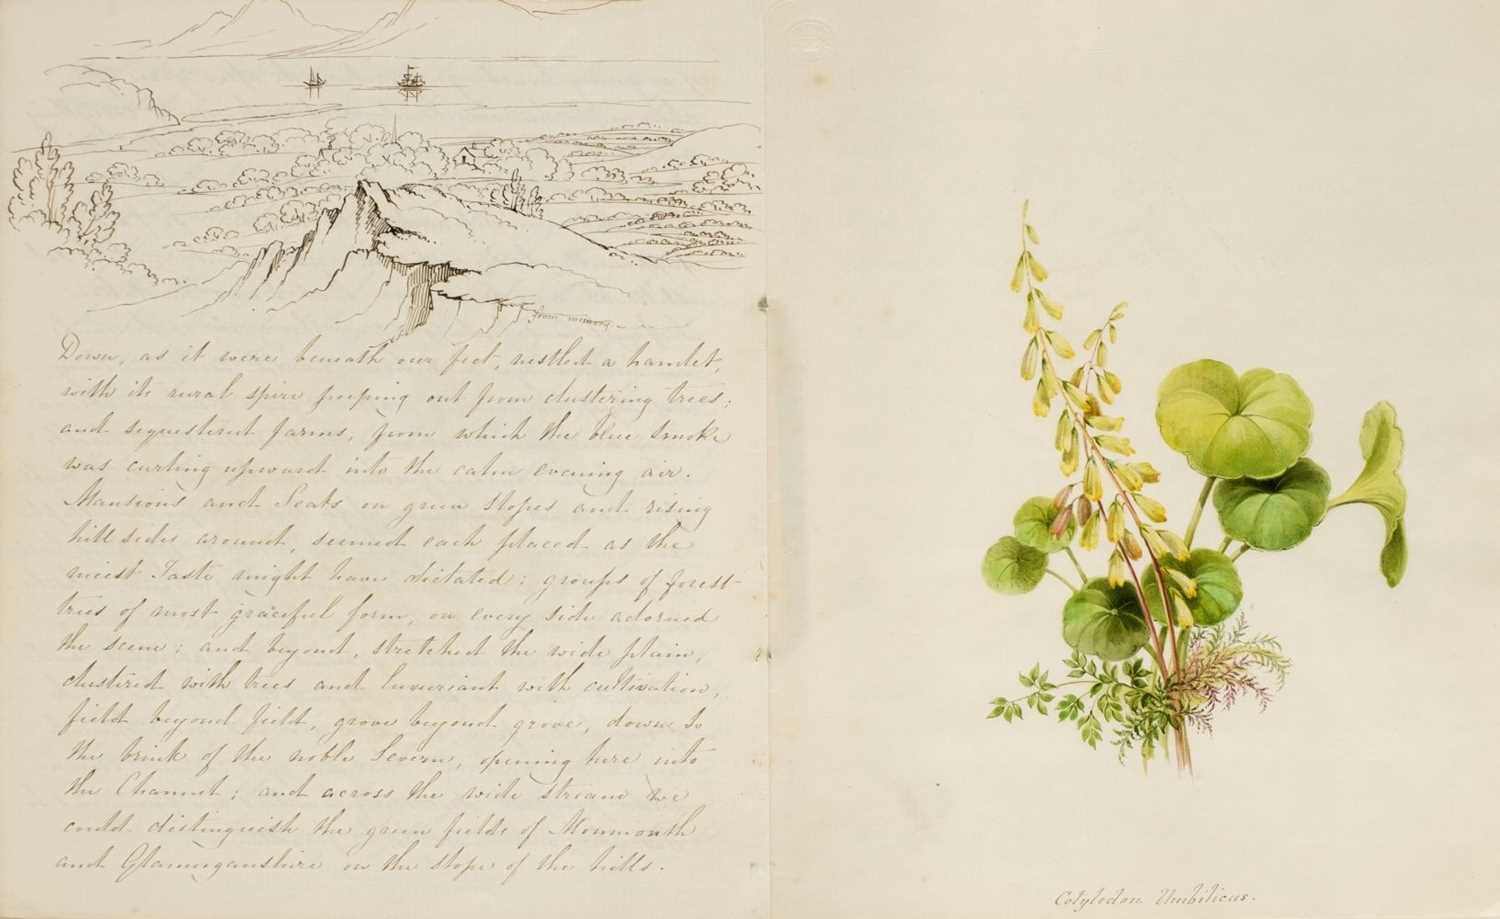 from memory
Down, as it were beneath our feet, nestled a hamlet,
with its rural spire peeping out from clustering trees;
and sequestered farms, from which the blue smoke
was curling upward into the calm evening air.
Mansions and Seats on green slopes and rising
hill sides around, seemed each placed as the
nicest Taste might have dictated; groups of forest
trees of most graceful form, on every side adorned
the scene; and beyond, stretched the wide plain,
clustered with trees and luxuriant with cultivation,
field beyond field, grove beyond grove, down to
the brink of the noble Severn, opening here into
the Channel; and across the wide stream we
could distinguish the green fields of Monmouth
and Glamorganshire on the slope of the hills.
Cotyledon Umbilicus.